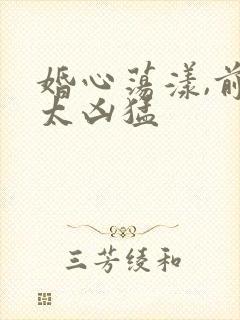 婚心荡漾,前
太凶猛
三芳绫和